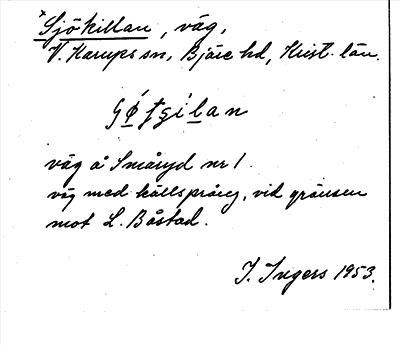 *Sjökillan, väg,
V. Karups sn, Bjäre hd, Krist. län.
väg å Småryd nr 1.
väg med källsprång, vid gränsen
mot L. Båstad.
I. Ingers 1953.